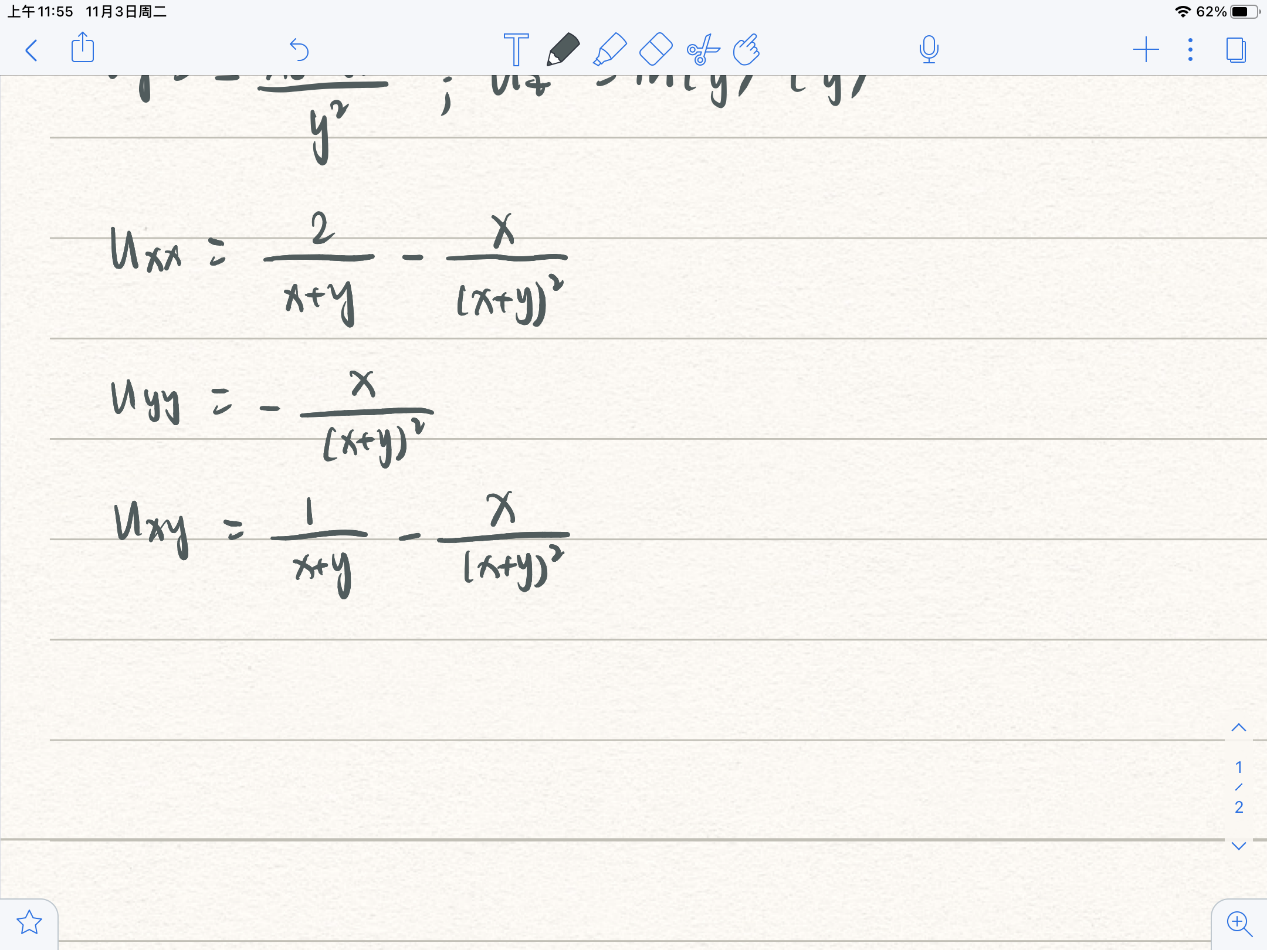 上午11:55 11月3日周二 62%
y²
Uxx = 2/(x+y) - x/(x+y)²
Uyy = - x/(x+y)²
Uxy = 1/(x+y) - x/(x+y)²
1
/
2